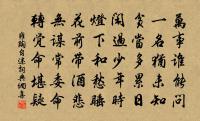 萬事誰能問
一名猶未知
貧當多累日
閑過少年時
燈下和愁睡
花前帶酒悲
無謀常委命
轉覺命堪疑
雍陶自述詞典網書